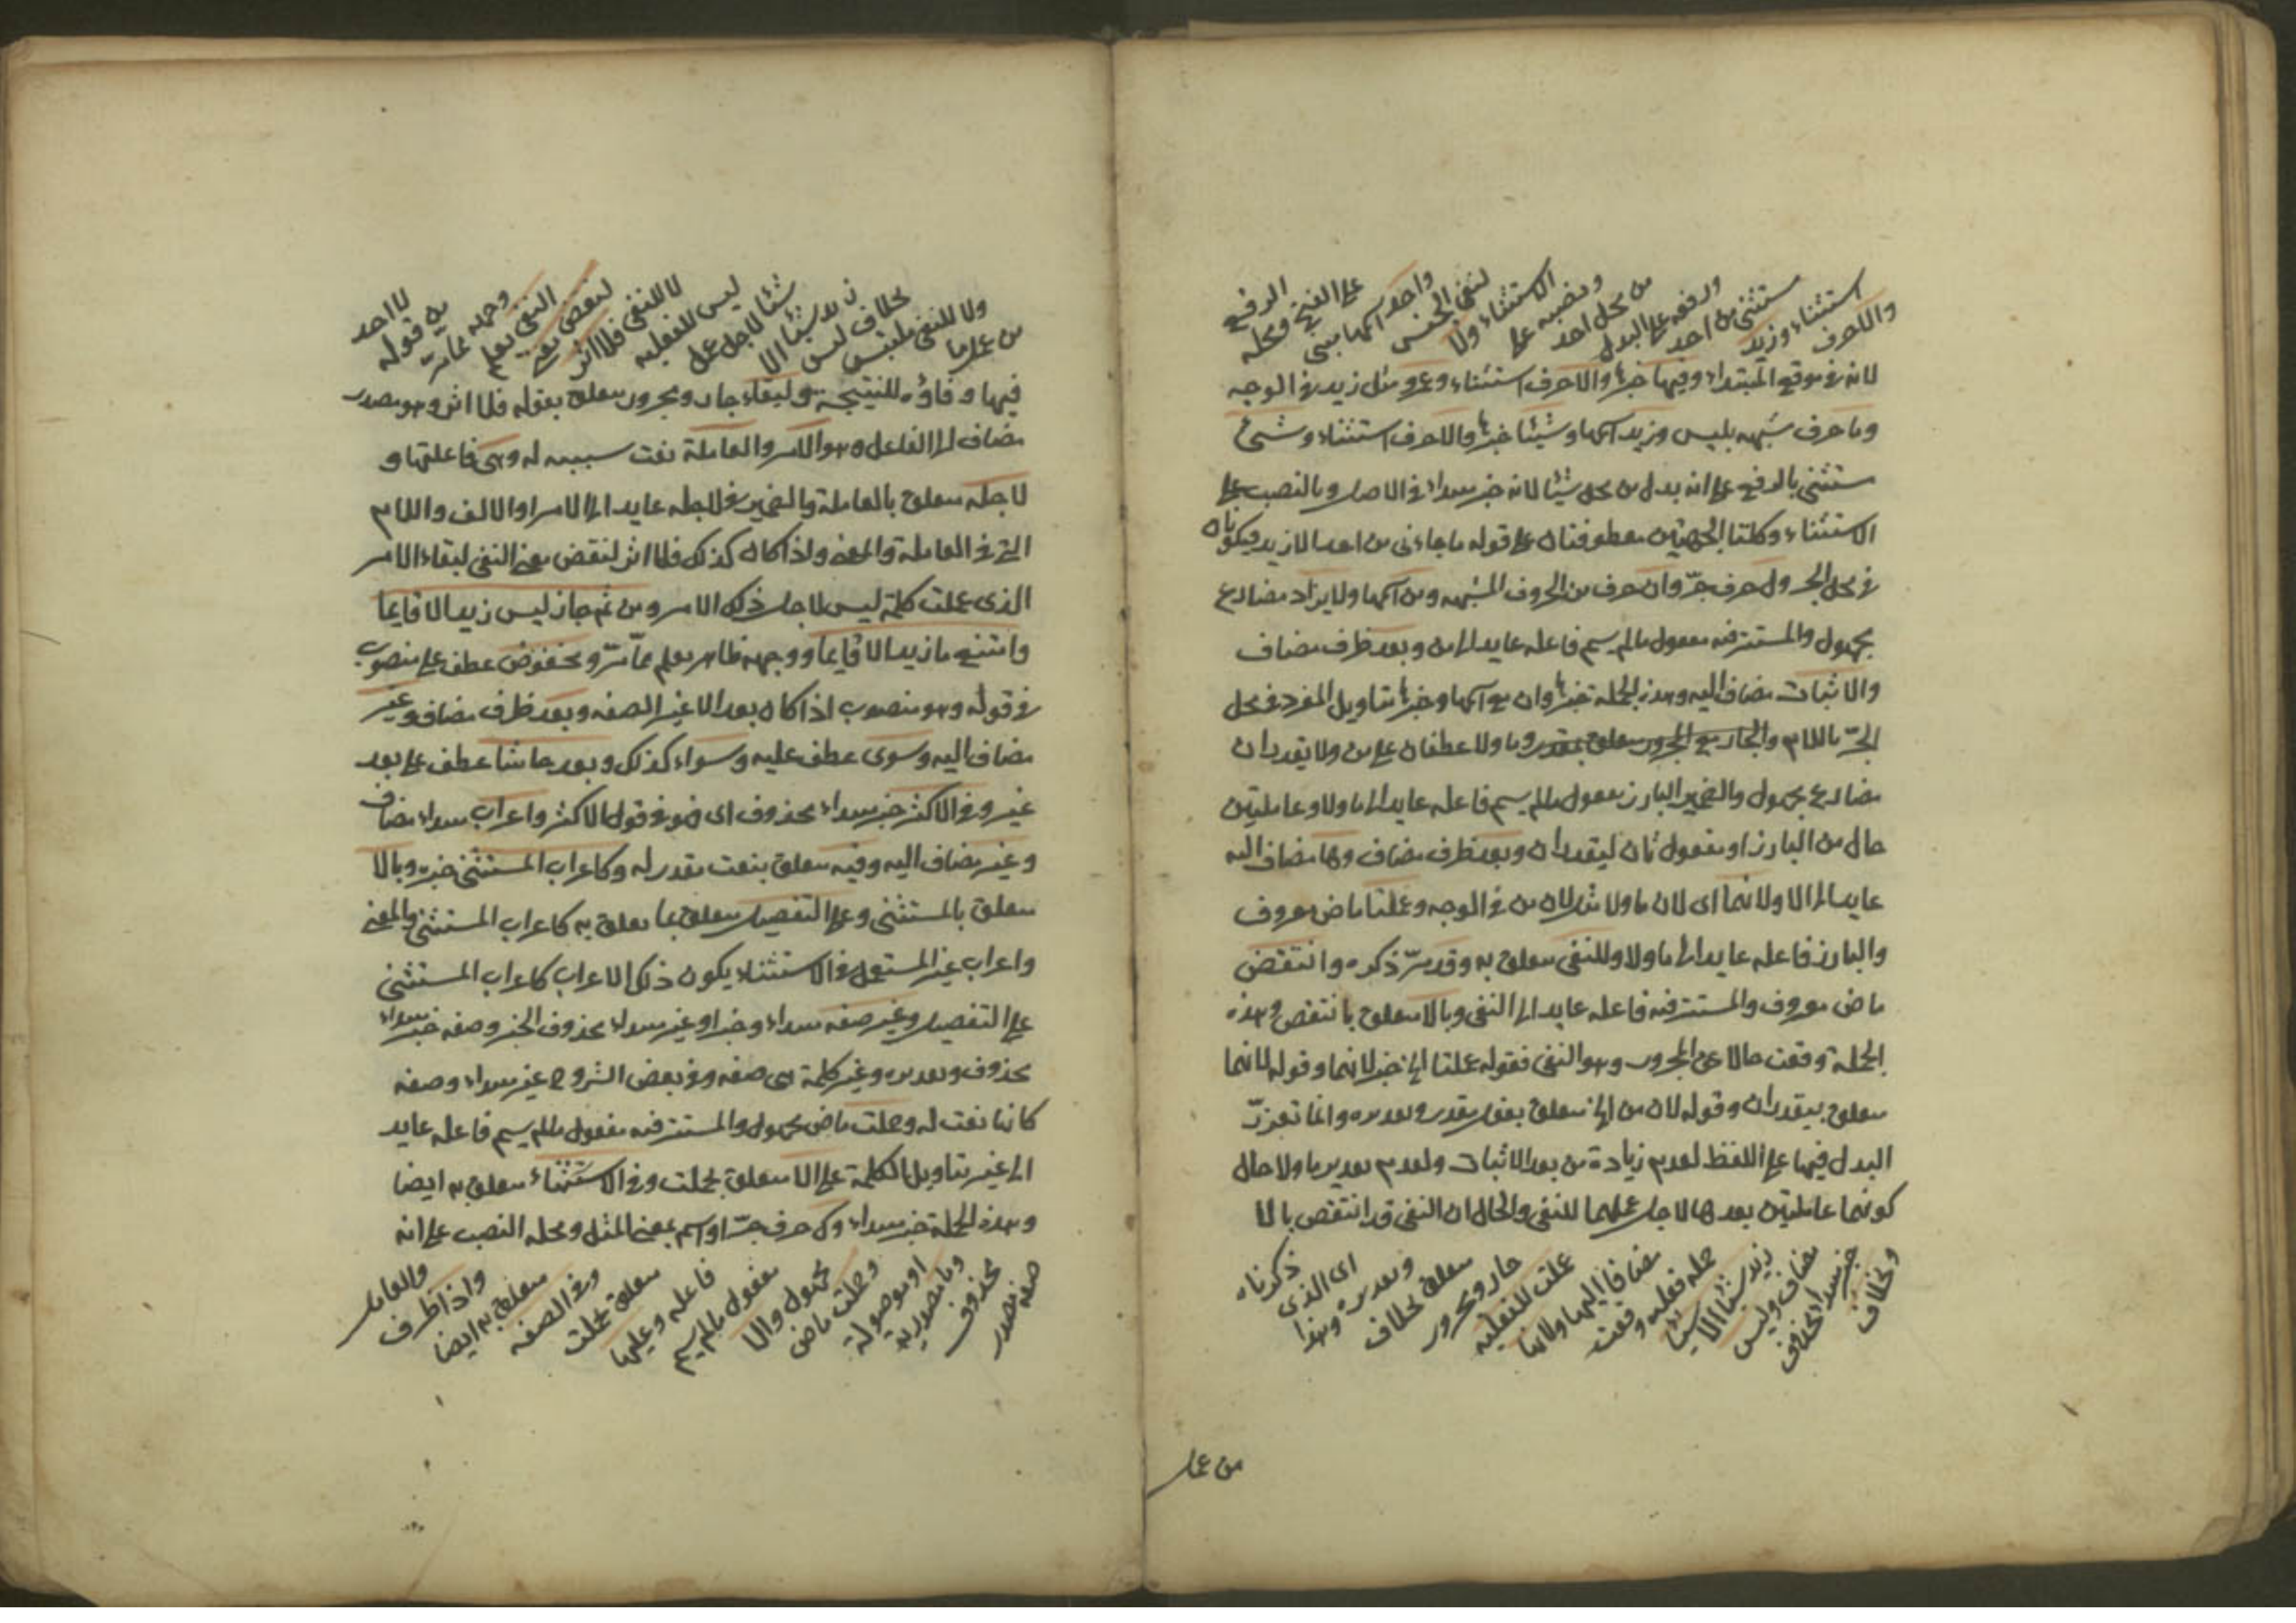 والا حرف
استثناء وزيد
مستثنى من احد
ورفعه على البدل
من محل احد
ونصبه على
الاستثناء ولا
لنفى الجنس
واحد اسمها مبنى
على الفتح ومحله
الرفع
لانه فى موقع المبتداء وفيها خبرها والا حرف استثناء وعمرو مثل زيد فى الوجه
وما حرف شبهه بليس وزيد اسمها وشيئا خبرها والا حرف استثناء وشئ
مستثنى بالرفع على انه بدل من محل شيئا لانه خبر مبتداء فى الاصل وبالنصب على
الاستثناء وكلتا الجملتين معطوفتان على قوله ما جاءنى من احد الا زيد فيكونان
فى محل الجر ول حرف جرّ وان حرف من الحروف المشبهه ومن اسمها ولا يزاد مضارع
مجهول والمستتر فيه مفعول مالم يسم فاعله عايد الى من وبعد ظرف مضاف
والاثبات مضاف اليه وهذه الجملة خبرها وان مع اسمها وخبرها بتاويل المفرد فى محل
الجرّ باللام والجار مع المجرور متعلق بمقدر وما ولا عطفان على من ولا يقدران
مضارع مجهول والضمير البارز مفعول مالم يسم فاعله عايد الى ما ولا وعاملتين
حال من البارز او مفعول ثان ليقدران وبعد ظرف مضاف وها مضاف اليه
عايد الى الا ولانهما اى لان ما ولا مثل لان من فى الوجه وعملتا ماض معروف
والبارز فاعله عايد الى ما ولا وللنفى متعلق به وقد مرّ ذكره وانتقض
ماض معروف والمستتر فيه فاعله عايد الى النفى وبالا متعلق بانتقض وهذه
الجملة وقعت حالا عن المجرور وهو النفى فقوله عملتا الى خبر لانهما وقوله لانهما
متعلق بيقدران وقوله لان من الى متعلق بفعل مقدر وتقديره وانما تعذرّ
البدل فيها على اللفظ لعدم زيادة من بعد الاثبات ولعدم تقدير ما ولا حال
كونهما عاملتين بعدها لاجل عملهما للنفى والحال ان النفى قد انتقض بالا
وبخلاف
خبر مبتداء المحذوف
مضاف وليس
زيد شيئا الا شيئا
جملة فعليه وقعت
مضافا اليها ولانها
عملت للفعليه
جار ومجرور
متعلق بخلاف
وتقديره وهذا
اى الذى
ذكرناه
من عمل
من عمل ما
ولا للنفى ملتبس
بخلاف ليس
زيد شيئا الا
شيئا لاجل عمل
ليس للفعليه
لا للنفى فلا اثر
لنقض معنى
النفى يعلم
وجهه مما مرّ
من قوله
لا احد
فيها وفاؤه للنتيجه ولبقاء جار ومجرور متعلق بقوله فلا اثر وهو مصدر
مضاف الى الفاعل وهو الامر والعاملة نعت سببيه له وهى فاعلتها و
لاجله متعلق بالعاملة والضمير فى لاجله عايد الى الامر او الالف واللام
التى فى العاملة والمعنى واذا كان كذلك فلا اثر لنقض معنى النفى لبقاء الامر
الذى عملت كلمة ليس لاجل ذلك الامر ومن ثم جاز ليس زيد الا قايما
وامتنع ما زيد الا قايما ووجهه ظاهر يعلم ممّا مرّ ومخفوض عطف على منصوب
فى قوله وهو منصوب اذا كان بعد الا غير الصفه وبعد ظرف مضاف وغير
مضاف اليه وسوى عطف عليه وسواء كذلك وبعد حاشا عطف على بعد
غير وفى الاكثر خبر مبتداء محذوف اى هو فى قول الاكثر واعراب مبتداء مضاف
وغير مضاف اليه وفيه متعلق بنعت مقدر له وكاعراب المستثنى خبره وبالا
متعلق بالمستثنى وعلى التفصيل متعلق بما تعلق به كاعراب المستثنى والمعنى
واعراب غير المستعمل فى الاستثناء يكون ذلك الاعراب كاعراب المستثنى
على التفصيل وغير صفه مبتداء وخبر او غير مبتداء محذوف الخبر وصفه خبر مبتداء
محذوف وتقديره وغير كلمة هى صفه وفى بعض الشروح غير مبتداء وصفه
كائنا نعت له وحملت ماض مجهول والمستتر فيه مفعول مالم يسم فاعله عايد
الى غير بتاويل الكلمة على الا متعلق بحملت وفى الاستثناء متعلق به ايضا
وهذه الجملة خبر مبتداء وك حرف جرّ او اسم بمعنى المثل ومحله النصب على انه
صفه مصدر
محذوف
وما مصدرية
او موصولة
وحملت ماض
مجهول والا
مفعول مالم يسم
فاعله وعليها
متعلق بحملت
وفى الصفه
متعلق به ايضا
واذا ظرف
والعامل